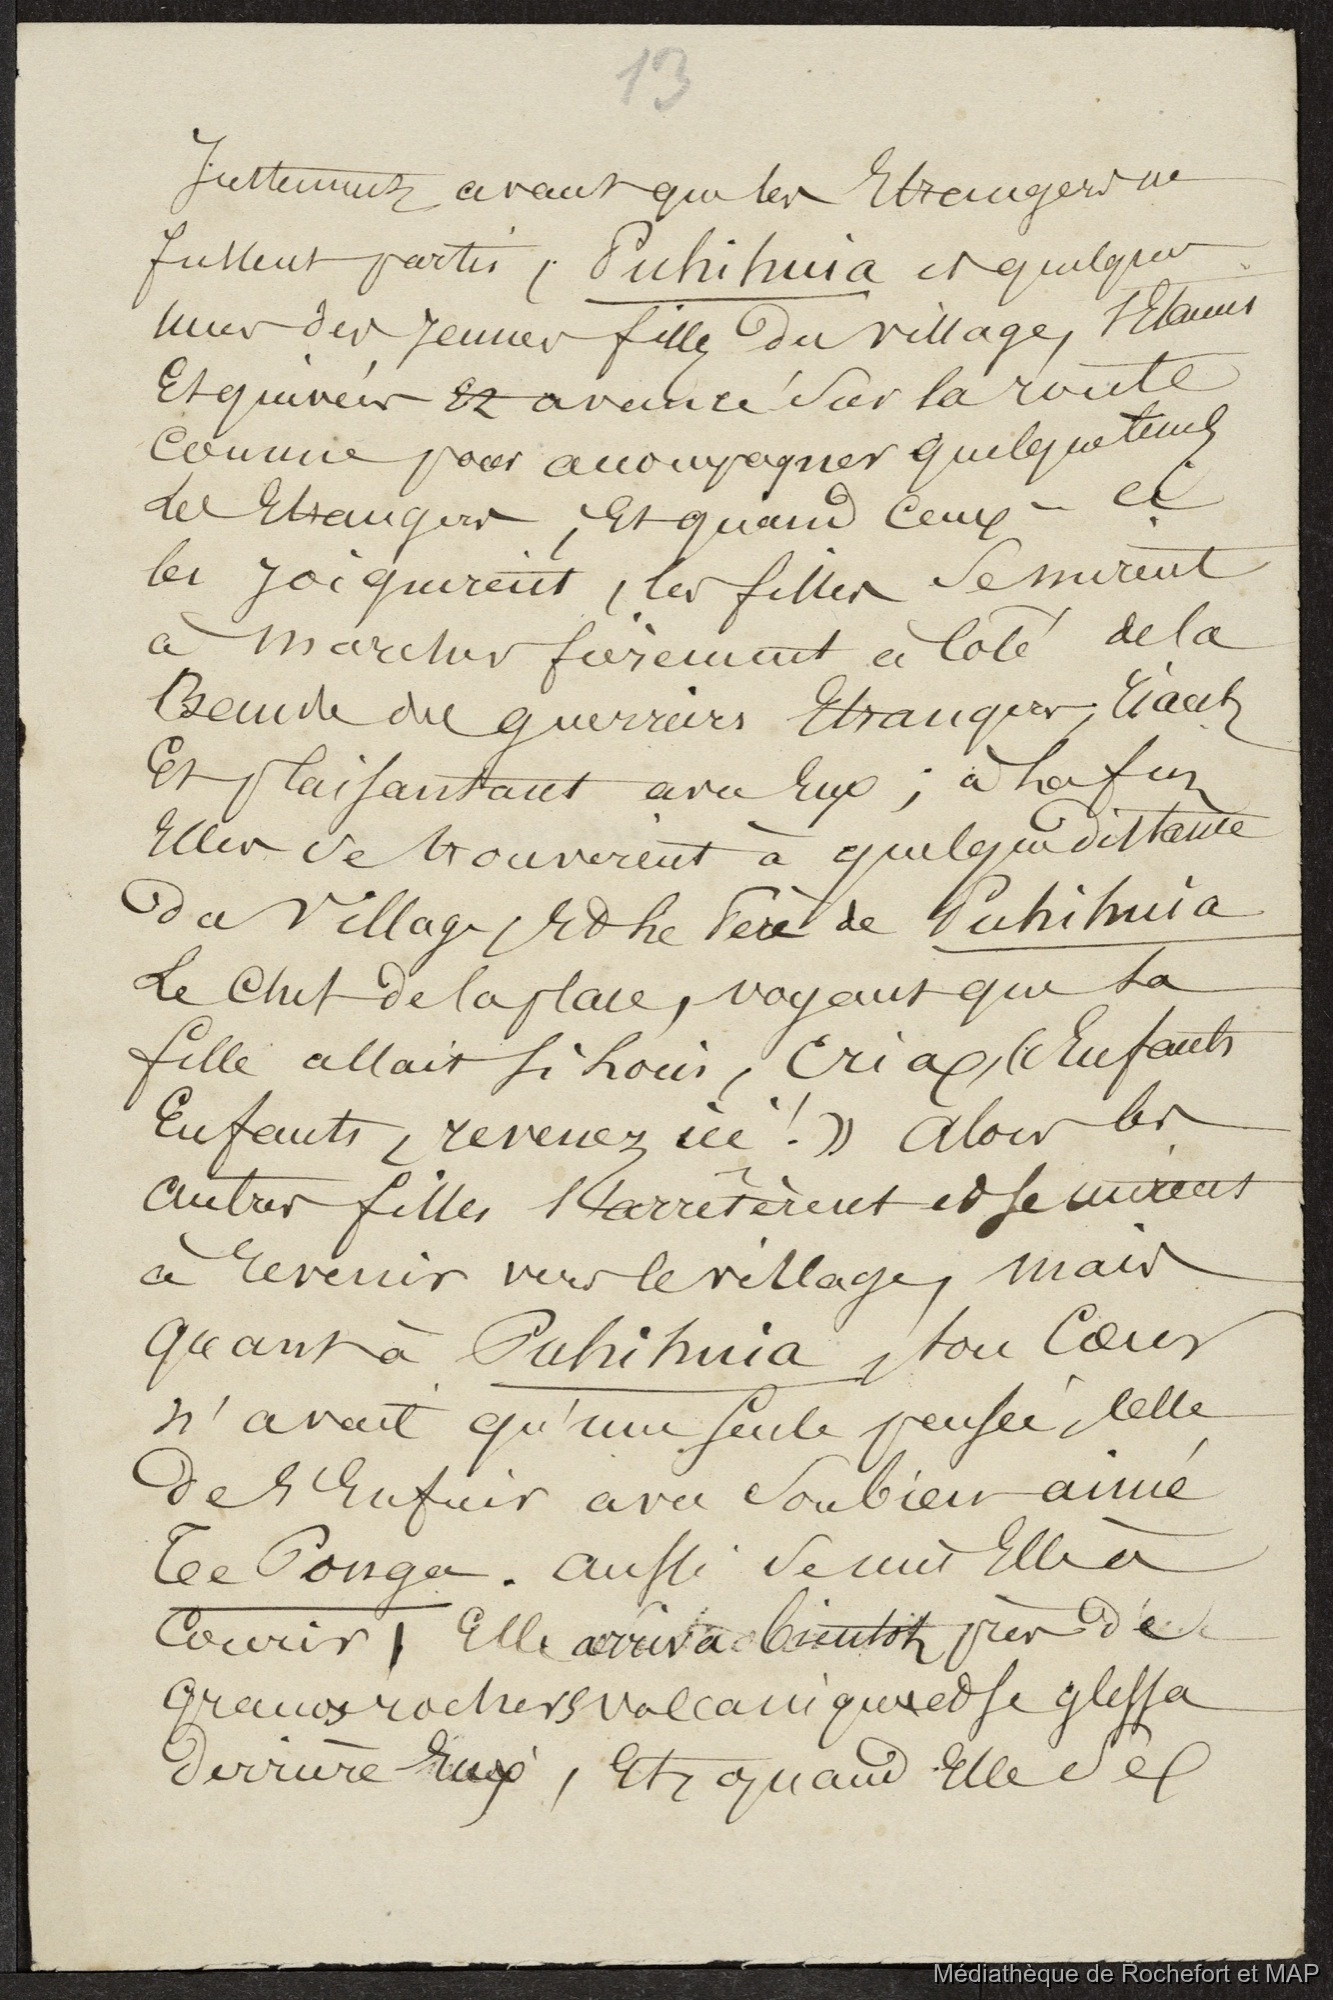 13
Justement avant que les Etrangers ne
fussent partis, Puhihuia et quelques
unes des jeunes filles du village, s'étant
Esquivées et avancé sur la route
comme pour accompagner quelque temps
Les Etrangers, Et quand ceux-ci
les joignirent, les filles se mirent
à marcher fièrement à côté de la
Bande des guerriers Etrangers, riant
Et plaisantant avec Eux ; à la fin
Elles se trouvèrent à quelque distance
du village, et le Père de Puhihuia
Le Chef de la place, voyant que sa
fille allait si loin, Cria « Enfants
Enfants, revenez ici ! » alors les
autres filles s'arretèrent et se mirent
à revenir vers le village, mais
quant à Puhihuia, son Cœur
n'avait qu'une seule pensée, celle
de s'Enfuir avec son bien aimé
Te Ponga. aussi se mit Elle à
Courir, Elle arriva bientôt près de
grands rochers volcaniques et se glissa
derrière Eux, Et quand Elle s'e
Médiathèque de Rochefort et MAP